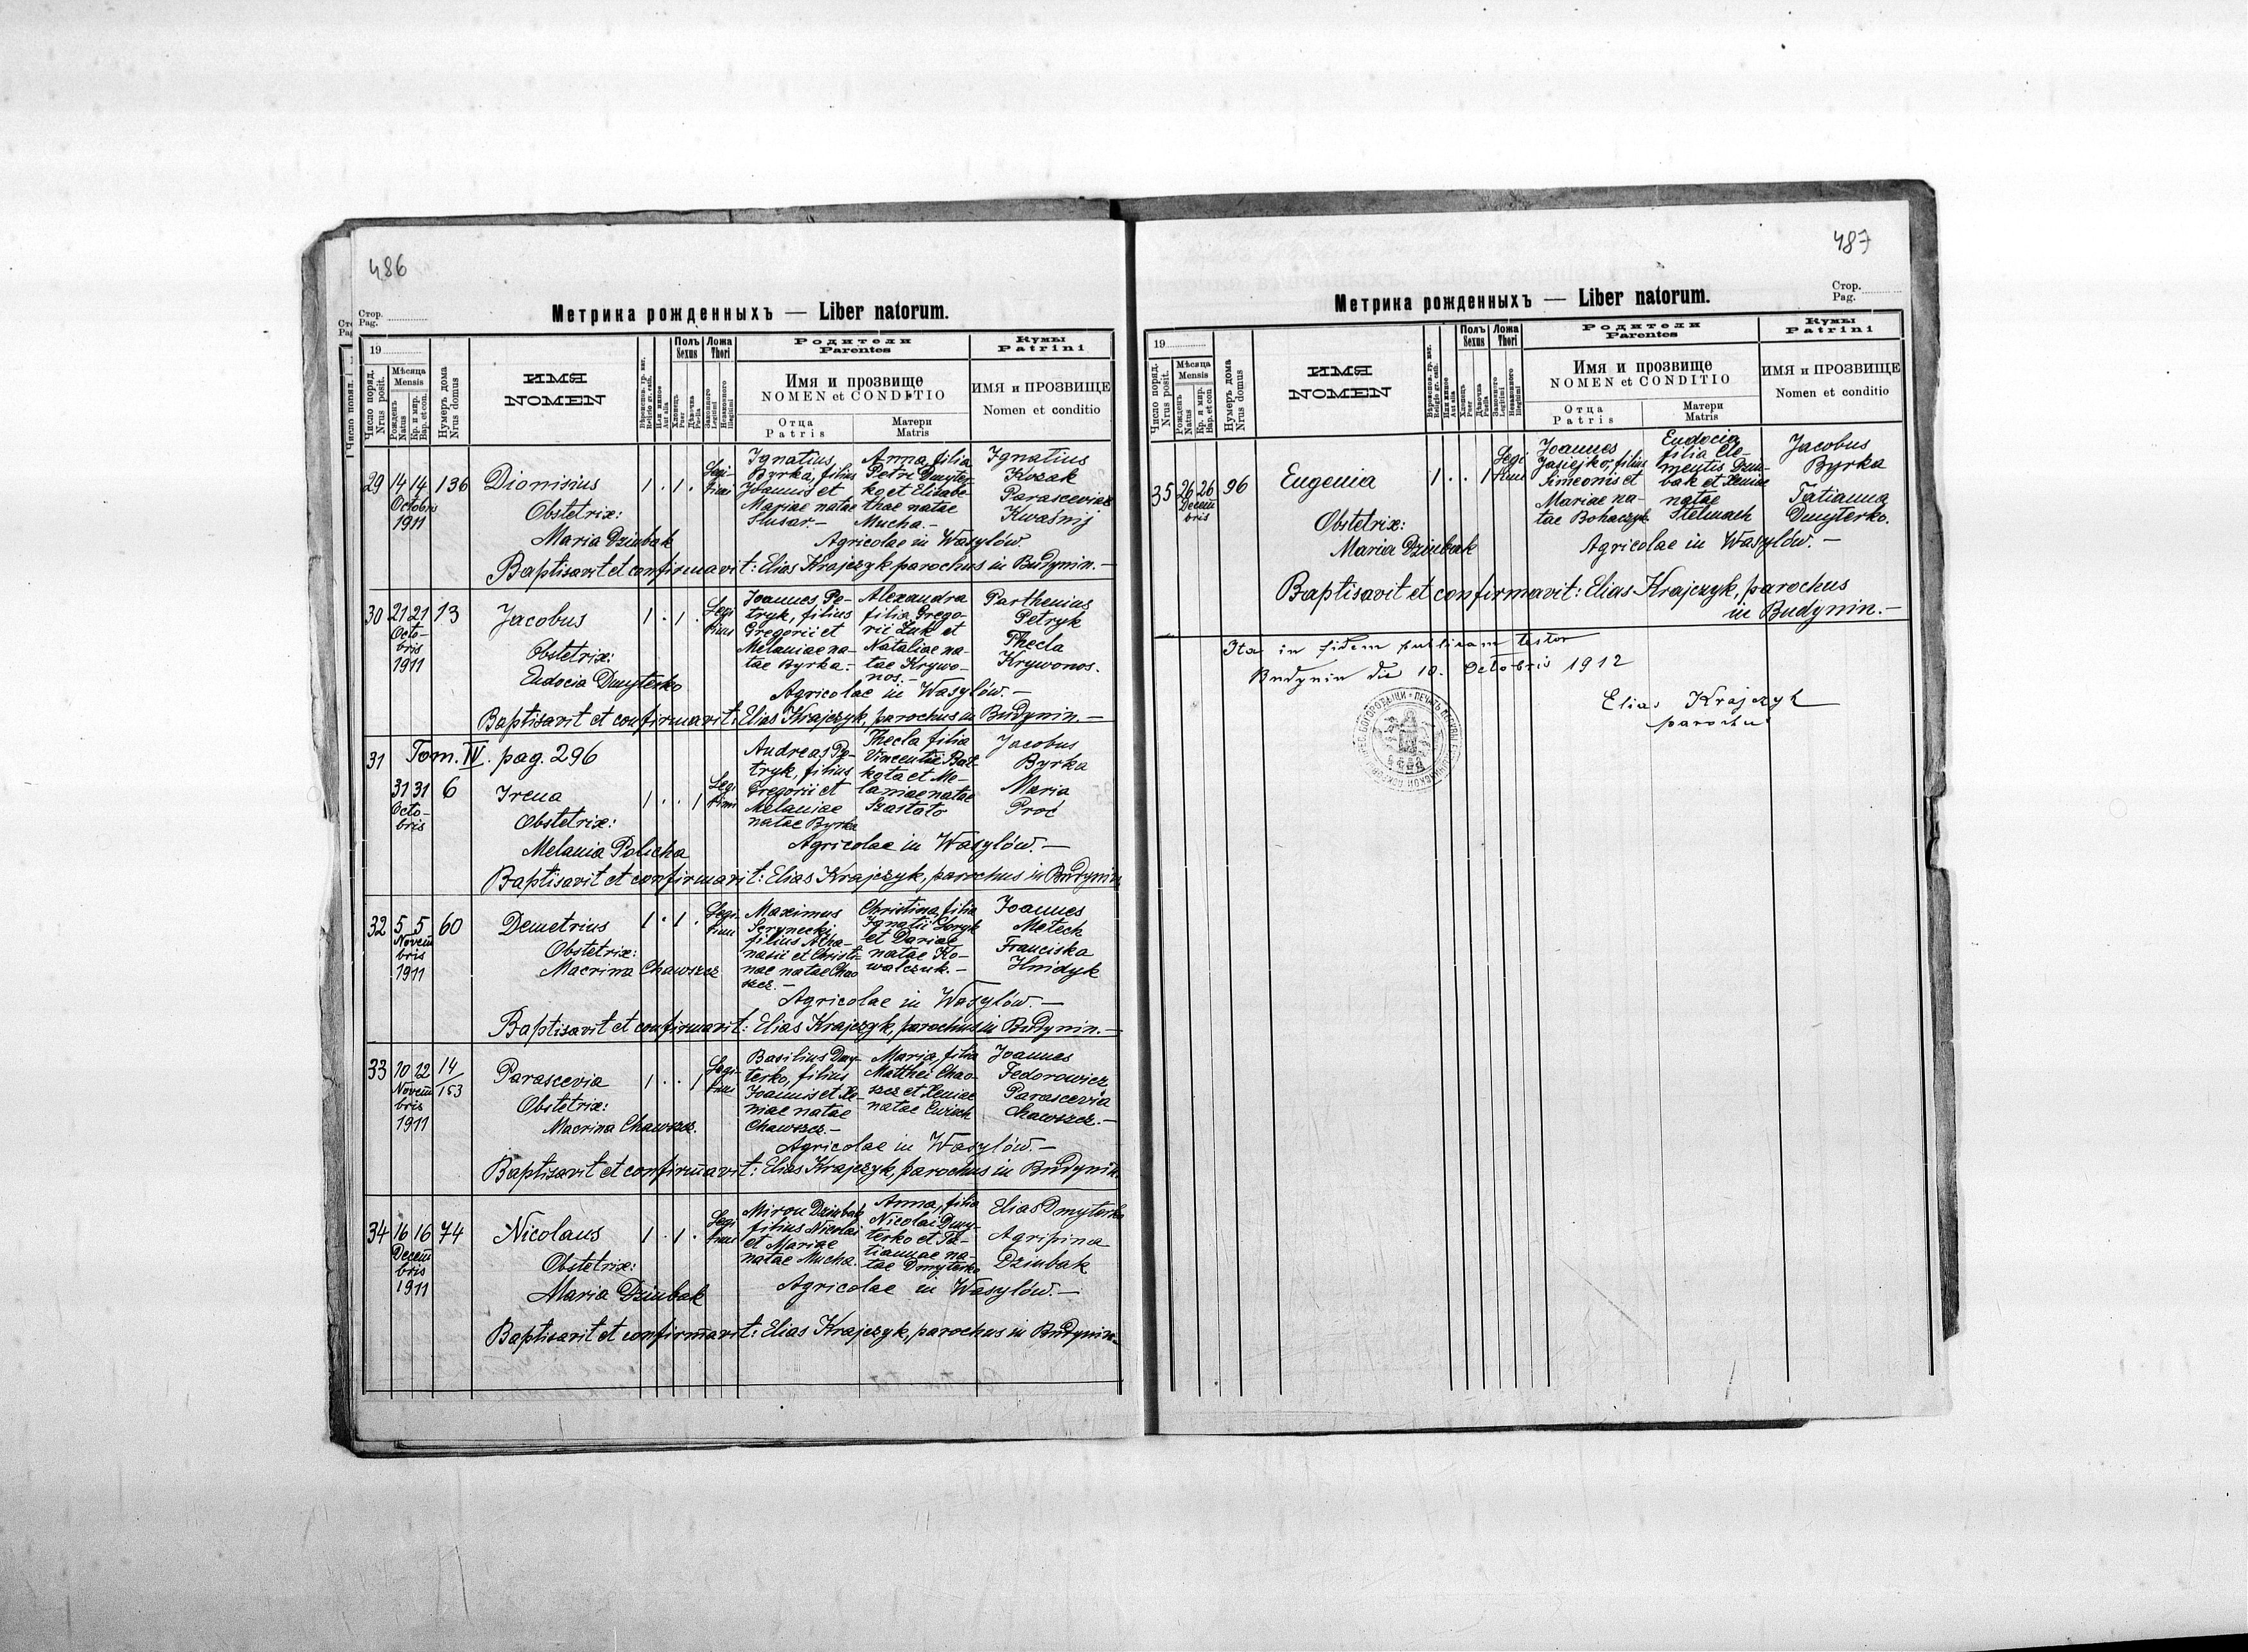 486
Стор.
Pag.
Метрика рожденныхъ — Liber natorum.
19
Число поряд.
Nrus posit.
Мѣсяца
Mensis
Рожденъ
Natus
Кр. и мир.
Bap. et con.
Нумеръ дома
Nrus domus
ИМЯ
NOMEN
Полъ
Sexus
Хлопецъ
Puer
Дѣвочка
Puella
Ложа
Thori
Законного
Legitimi
Незаконного
Illegitimi
Родители
Parentes
Имя и прозвище
NOMEN et CONDITIO
Отца
Patris
Матери
Matris
Кумы
Patrini
ИМЯ и ПРОЗВИЩЕ
Nomen et conditio
29 14 14 136 Dionisius 1 . 1 . Legi-
timi
Octobris
1911
Obstetrix:
Maria Dziubak
Ignatius
Byrka, filius
Joannis et
Mariae natae
Slusar —
Anna, filia
Petri Dmyter-
ko et Elisabe-
thae natae
Mucha. —
Ignatius
Kozak
Parascevia
Kwaśnij
Agricolae in Wasylów.
Baptisavit et confirmavit: Elias Krajczyk parochus in Budynin. —
30 21 21 13 Jacobus 1 . 1 . Legi
timi
Octo-
bris
1911
Obstetrix:
Eudocia Dmyterko
Joannes Pe-
tryk, filius
Gregorii et
Melaniae na-
tae Byrka. —
Alexandra
filia Grego-
rii Luk et
Nataliae na-
tae Krywo-
nos. —
Parthenius
Petryk
Thecla
Krywonos.
Agricolae in Wasylów. —
Baptisavit et confirmavit: Elias Krajczyk, parochus in Budynin. —
31 Tom. IV. pag. 296
31 31 6 Irena 1 . . 1 Legi
timi
Octo-
bris
Obstetrix:
Melania Policha
Andreas Pe-
tryk, filius
Gregorii et
Melaniae
natae Byrka
Thecla filia
Vincentii
kota et Me-
laniae natae
Szastało
Jacobus
Byrka
Maria
Proć
Agricolae in Wasylów. —
Baptisavit et confirmavit: Elias Krajczyk, parochus in Budynin
32 5 5 60 Demetrius 1 . 1 . Legi-
timi
Novem
bris
1911
Obstetrix:
Macrina Chawszcz
Maximus
Serynecki
filius Atha-
nasii et Christi-
nae natae Chao
szcz. —
Christina, filia
Ignatii
et Dariae
natae Ko-
walczuk. —
Joannes
Metech
Franciska
Hnidyk
Agricolae in Wasylów. —
Baptisavit et confirmavit: Elias Krajczyk, parochus in Budynin. —
33 10 12 14/153 Parascevia 1 . . 1 Legi-
timi
Novem
bris
1911
Obstetrix:
Macrina Chawszcz.
Basilius Dmy-
terko, filius
Joannis et Xe-
niae natae
Chawszcz. —
Maria, filia
Matthei Chao-
szcz et Xeniae
natae
Joannes
Fedorowicz
Parascevia
Chawszcz. —
Agricolae in Wasylów. —
Baptisavit et confirmavit: Elias Krajczyk, parochus in Budynin.
34 16 16 74 Nicolaus 1 . 1 . Legi
timi
Decem
bris
1911
Obstetrix:
Maria Dziubak
Miron Dziubak
filius Nicolai
et Mariae
natae Mucha.
Anna, filia
Nicolai Dmy-
terko et Ta-
tiannae na-
tae Dmyterko
Elias Dmyterko
Agripina
Dziubak
Agricolae in Wasylów. —
Baptisavit et confirmavit: Elias Krajczyk, parochus in Budynin —
487
Стор.
Pag.
Метрика рожденныхъ — Liber natorum.
19
Число поряд.
Nrus posit.
Мѣсяца
Mensis
Рожденъ
Natus
Кр. и мир.
Bap. et con.
Нумеръ дома
Nrus domus
ИМЯ
NOMEN
Полъ
Sexus
Хлопецъ
Puer
Дѣвочка
Puella
Ложа
Thori
Законного
Legitimi
Незаконного
Illegitimi
Родители
Parentes
Имя и прозвище
NOMEN et CONDITIO
Отца
Patris
Матери
Matris
Кумы
Patrini
ИМЯ и ПРОЗВИЩЕ
Nomen et conditio
35 26 26 96 Eugenia 1 . . 1 Legi
timi
Decem
bris
Obstetrix:
Maria Dziubak
Joannes
Jasiejko, filius
Simeonis et
Mariae na-
tae Bohaczyk
Eudocia
filia Cle-
mentis Dziu-
bak et Xeniae
natae
Stelmach
Jacobus
Byrka
Tatianna
Dmyterko.
Agricolae in Wasylów. —
Baptisavit et confirmavit: Elias Krajczyk, parochus
in Budynin. —
Ita in fidem publicam testor
Budynin die 10. Octobris 1912
Elias Krajczyk
parochus